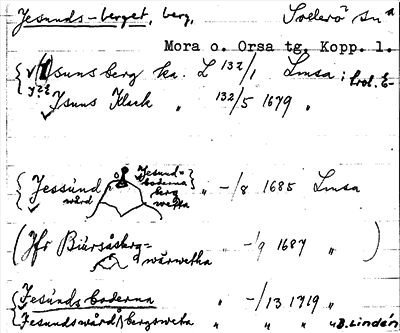 Jesunds-berget, berg, Sollerö sn
Mora o. Orsa tg. Kopp. l.
Isunsberg ka. L 132/1 Lmsa; trol. E-
Isuns Klack " 132/5 1679 "
Jessund Jesunds-
boderna
berg
wård wetta " -/8 1685 Lmsa
(Jfr Biursåsberg=
wårwetka -/9 1687 " )
Jesunds boderna " -/13 1719 "
Jesundswård bergsweta " " " " D. Lindén